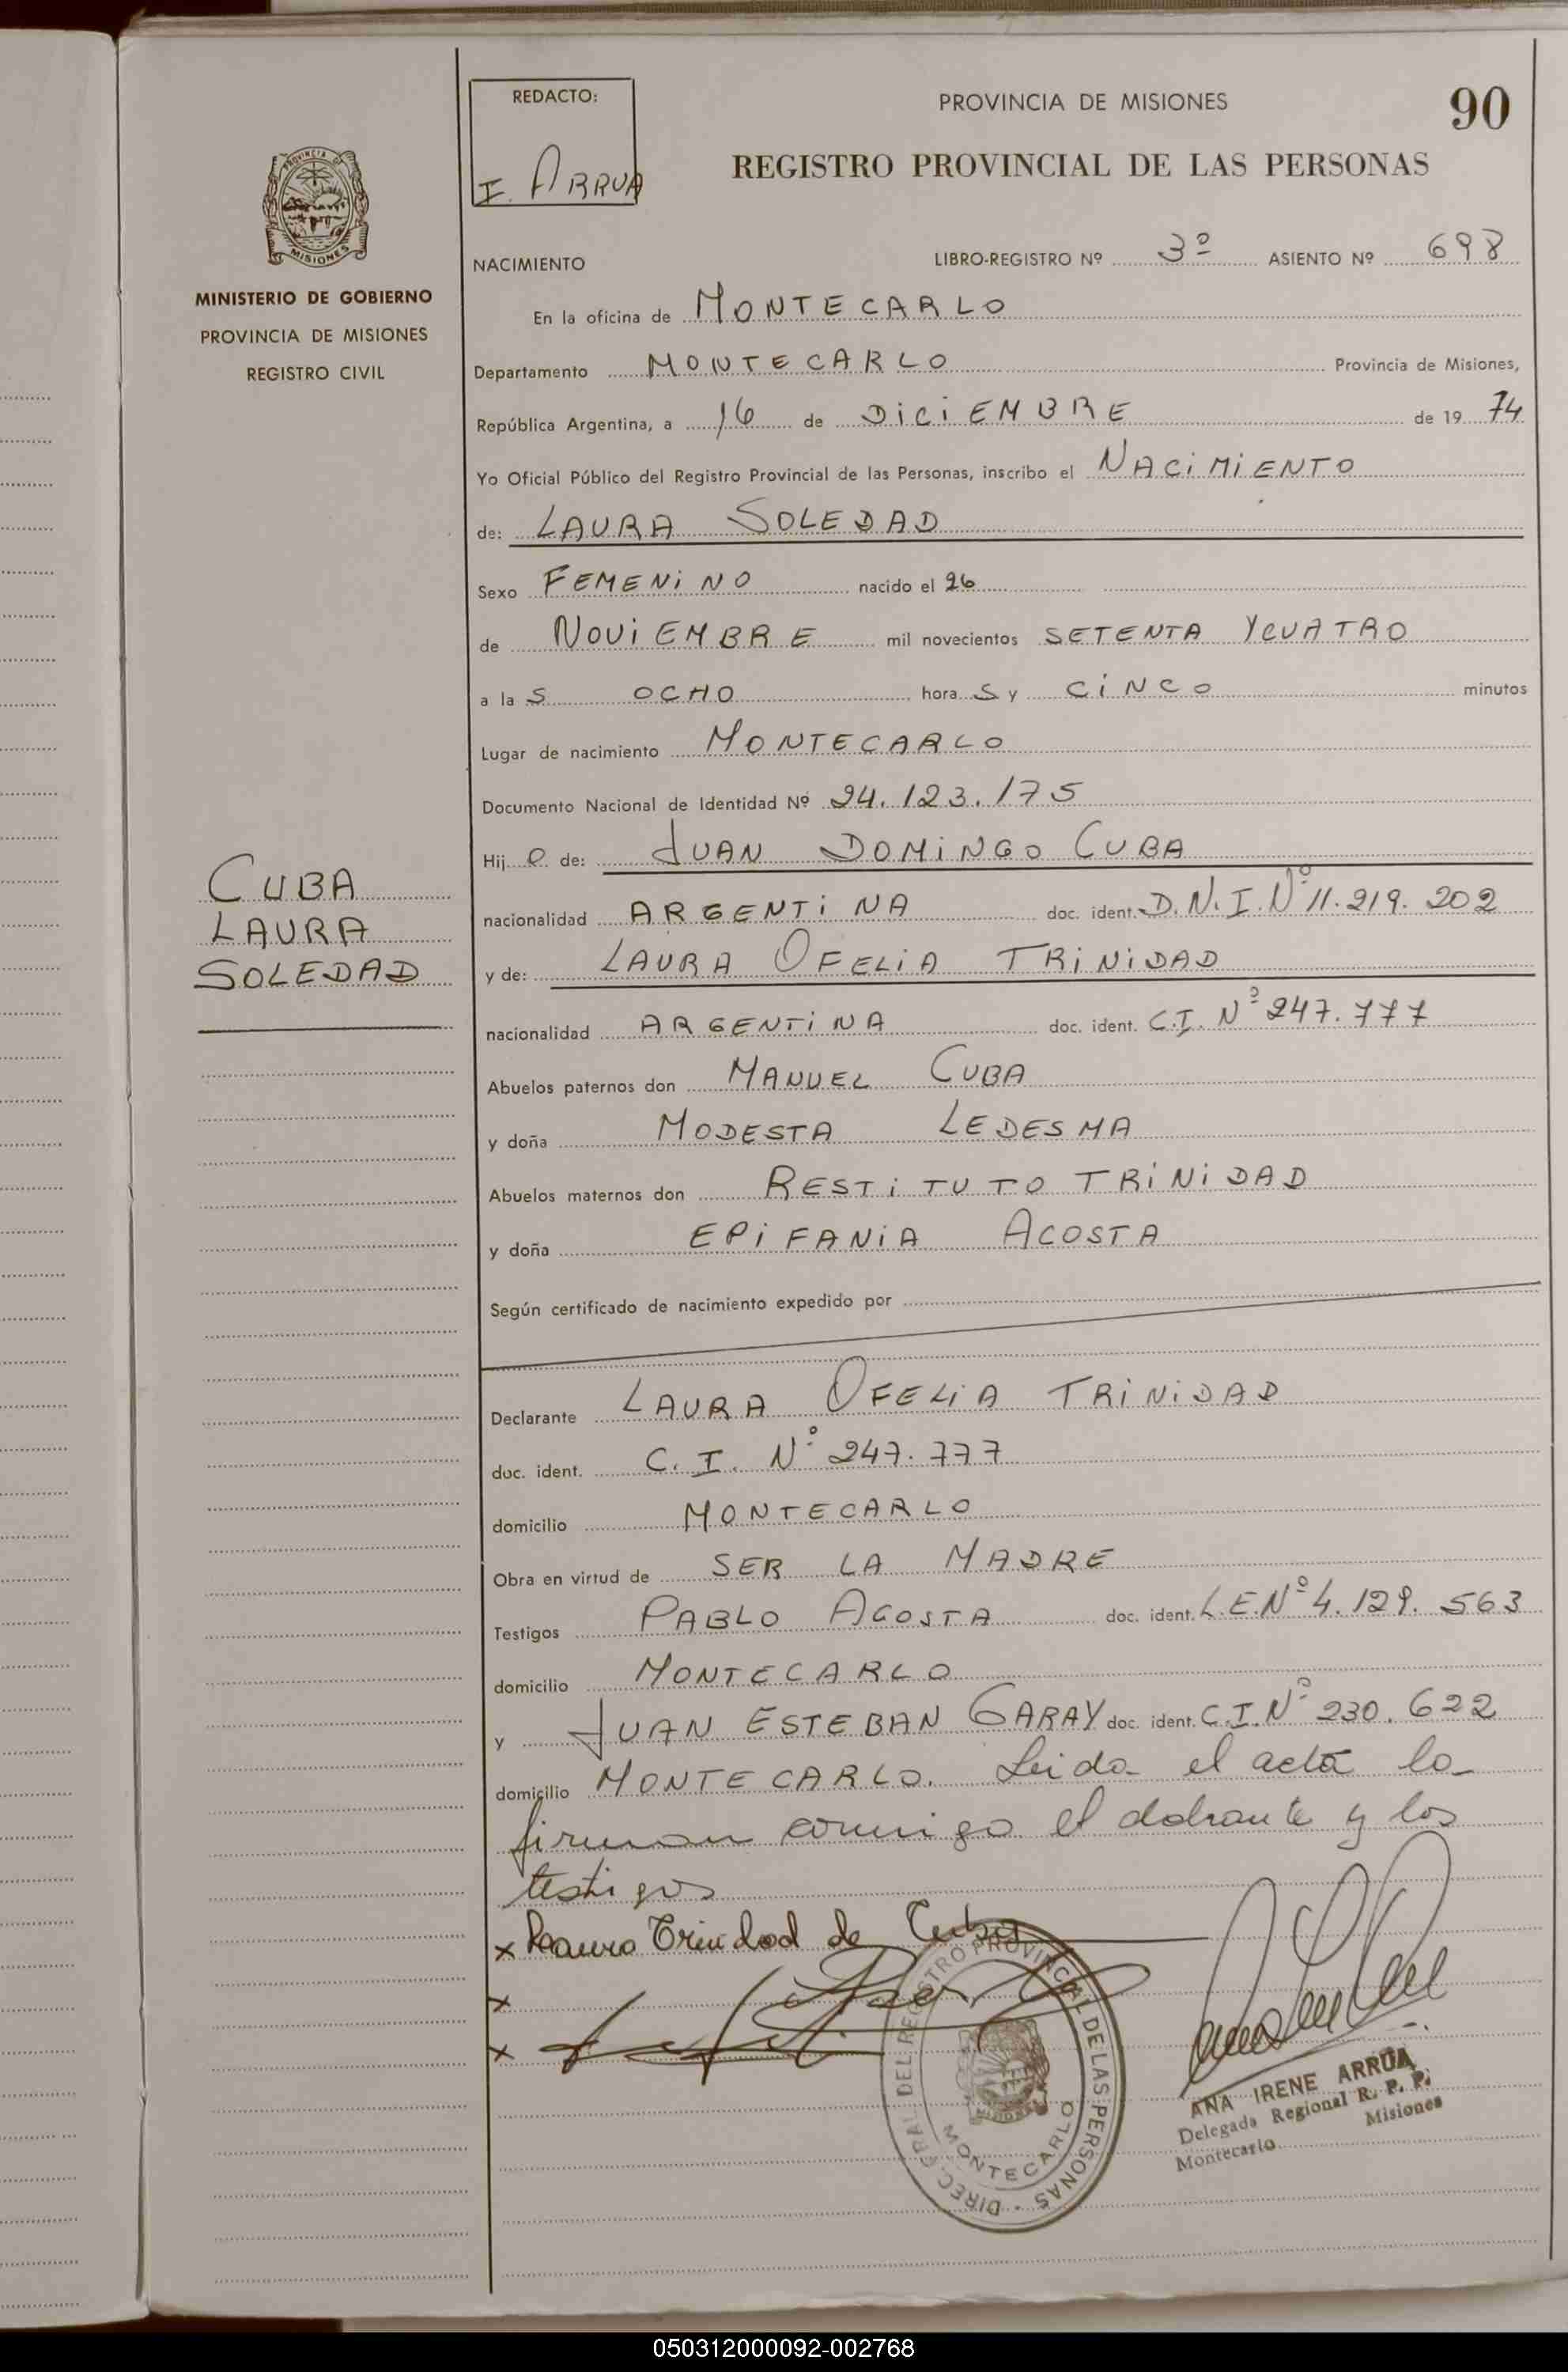 REDACTO:
I. ARRUA
PROVINCIA DE MISIONES
90
REGISTRO PROVINCIAL DE LAS PERSONAS
PROVINCIA DE
MISIONES
MINISTERIO DE GOBIERNO
PROVINCIA DE MISIONES
REGISTRO CIVIL
NACIMIENTO LIBRO-REGISTRO Nº 3º ASIENTO Nº 698
En la oficina de MONTECARLO
Departamento MONTECARLO Provincia de Misiones,
República Argentina, a 16 de DICIEMBRE de 19 74
Yo Oficial Público del Registro Provincial de las Personas, inscribo el NACIMIENTO
de: LAURA SOLEDAD
Sexo FEMENINO nacido el 26
de NOVIEMBRE mil novecientos SETENTA Y CUATRO
a la S OCHO hora S y CINCO minutos
Lugar de nacimiento MONTECARLO
Documento Nacional de Identidad Nº 24.123.175
Hij o de: JUAN DOMINGO CUBA
CUBA
LAURA
SOLEDAD
nacionalidad ARGENTINA doc. ident. D.N.I. Nº 11.219.202
y de: LAURA OFELIA TRINIDAD
nacionalidad ARGENTINA doc. ident. C.I. Nº 247.777
Abuelos paternos don MANUEL CUBA
y doña MODESTA LEDESMA
Abuelos maternos don RESTITUTO TRINIDAD
y doña EPIFANIA ACOSTA
Según certificado de nacimiento expedido por
Declarante LAURA OFELIA TRINIDAD
doc. ident. C.I. Nº 247.777
domicilio MONTECARLO
Obra en virtud de SER LA MADRE
Testigos PABLO ACOSTA doc. ident. L.E. Nº 4.129.563
domicilio MONTECARLO
y JUAN ESTEBAN GARAY doc. ident. C.I. Nº 230.622
domicilio MONTECARLO. Leida el acta la
firman conmigo el dclrante y los
testigos
x Laura Trinidad de Cuba
x
x
DIREC. GRAL DEL REGISTRO PROVINCIAL DE LAS PERSONAS
MISIONES
MONTECARLO
ANA IRENE ARRUA
Delegada Regional R. P. P.
Montecarlo Misiones
050312000092-002768